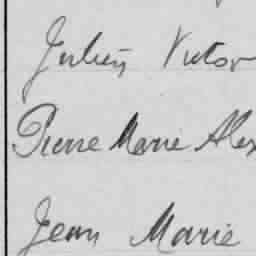 Julien Victor
Pierre Marie Alex
Jean Marie